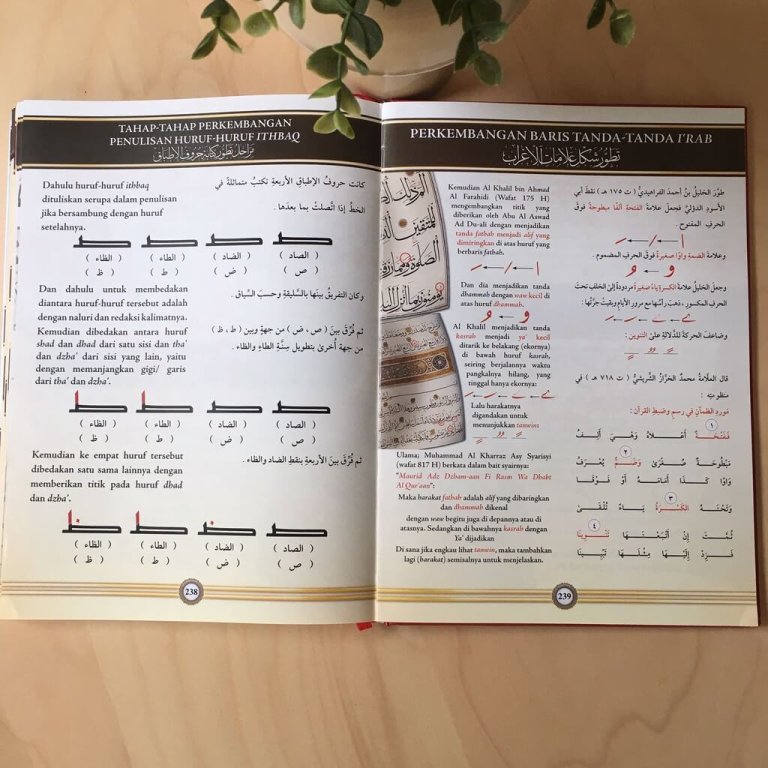 TAHAP-TAHAP PERKEMBANGAN
PENULISAN HURUF-HURUF ITHBAQ
مراحل تطور كتابة حروف الإطباق
Dahulu huruf-huruf ithbaq
dituliskan serupa dalam penulisan
jika bersambung dengan huruf
setelahnya.
كانت حروفُ الإطباقِ الأربعةِ تكتبُ متماثلةً في
الخطِّ إذا اتَّصلتْ بما بعدَها .
( الصاد ) ( الضاد ) ( الطاء ) ( الظاء )
( ص ) ( ض ) ( ط ) ( ظ )
Dan dahulu untuk membedakan
diantara huruf-huruf tersebut adalah
dengan naluri dan redaksi kalimatnya.
وكان التفريقُ بينها بالسَّليقةِ وحسبَ السِّياق .
Kemudian dibedakan antara huruf
shad dan dhad dari satu sisi dan tha'
dan dzha' dari sisi yang lain, yaitu
dengan memanjangkan gigi/ garis
dari tha' dan dzha'.
ثم فُرِّقَ بينَ ( ص ، ض ) من جهةٍ وبين ( ط ، ظ )
من جهةٍ أُخرىٰ بتطويلِ سِنَّةِ الطاءِ والظاء .
( الصاد ) ( الضاد ) ( الطاء ) ( الظاء )
( ص ) ( ض ) ( ط ) ( ظ )
Kemudian ke empat huruf tersebut
dibedakan satu sama lainnya dengan
memberikan titik pada huruf dhad
dan dzha'.
ثم فُرِّقَ بينَ الأربعةِ بنقطِ الضاد والظاء .
( الصاد ) ( الضاد ) ( الطاء ) ( الظاء )
( ص ) ( ض ) ( ط ) ( ظ )
238
PERKEMBANGAN BARIS TANDA-TANDA I'RAB
تطور شكل علامات الإعراب
Kemudian Al Khalil bin Ahmad
Al Farahidi (Wafat 175 H)
mengembangkan titik yang
diberikan oleh Abu Al Aswad
Ad Du-ali dengan menjadikan
tanda fathah menjadi alif yang
dimiringkan di atas huruf yang
berbaris fathah.
Dan dia menjadikan tanda
dhammah dengan waw kecil di
atas huruf dhammah.
Al Khalil menjadikan tanda
kasrah menjadi ya' kecil
ditarik ke belakang (ekornya)
di bawah huruf kasrah,
seiring berjalannya waktu
pangkalnya hilang, yang
tinggal hanya ekornya:
Lalu harakatnya
digandakan untuk
menunjukkan tanwin:
Ulama; Muhammad Al Kharraz Asy Syarisyi
(wafat 817 H) berkata dalam bait syairnya:
"Maurid Adz Dzham-aan Fi Rasm Wa Dhabt
Al Qur'aan":
Maka harakat fathah adalah alif yang dibaringkan
dan dhammah dikenal
dengan waw begitu juga di depannya atau di
atasnya. Sedangkan di bawahnya kasrah dengan
Ya' dijadikan
Di sana jika engkan lihat tanwin, maka tambahkan
lagi (harakat) semisalnya untuk menjelaskan.
طوَّرَ الخليلُ بنُ أحمدَ الفراهيديُّ ( ت ١٧٥ هـ ) نقطَ أبي
الأسودِ الدؤليِّ فجعلَ علامةَ الفتحةِ ألفًا مبطوحةً فوقَ
الحرفِ المفتوح .
وعلامةَ الضمةِ واوًا صغيرةً فوقَ الحرفِ المضموم .
وجعلَ الخليلُ علامةَ الكسرةِ ياءً صغيرةً مردودةً إلى الخلفِ تحتَ
الحرفِ المكسورِ ، ذهبَ رأسُها معَ مرورِ الأيامِ وبقيتْ جرَّتُها :
وضاعفَ الحركةَ للدَّلالةِ علىٰ التنوين :
قال العلَّامةُ محمدٌ الخرَّازُ الشَّريشيُّ ( ت ٧١٨ هـ ) في
منظومتِه :
مَوردِ الظمآنِ في رسمِ وضبطِ القرآن :
١
فَفَتْحَةٌ أَعْلَاهُ وَهْيَ أَلِفُ
٢
مَبْطُوحَةٌ صُغْرَىٰ وَضَمٌّ يُعْرَفُ
وَاوًا كَذَا أَمَامَهُ أَوْ فَوْقَا
٣
وَتَحْتَهُ الكَسْرَةُ يَاءً تُلْقَىٰ
٤
ثُمَّتَ إِنْ أَتْبَعْتَهَا تَنْوِينَا
فَزِدْ إِلَيْهَا مِثْلَهَا تَبْيِينَا
239